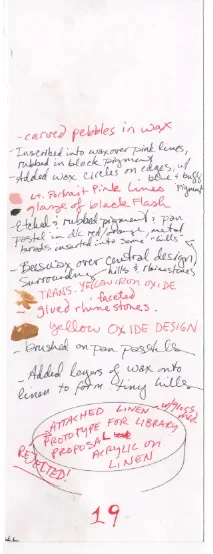 -carved pebbles in wax
-Inscribed into wax over pink lines,
rubbed in black pigment
-Added wax circles on edges, w/
blue & buff
pigment
Lt. Portrait Pink lines
glaze of black Flash
-Etched & rubbed pigment & pan
pastel in dk red/orange, metal
brads inserted into some hills
-Beeswax over central design,
surrounding hills & rhinestones
TRANS. YELLOW IRON OXIDE
faceted
-glued rhinestones.
YELLOW OXIDE DESIGN
-brushed on pan pastels
-Added layers of wax onto
linen to form tiny hills
ATTACHED LINEN w/glass
PROTOTYPE FOR LIBRARY
PROPOSAL
ACRYLIC ON
LINEN
REJECTED!
19